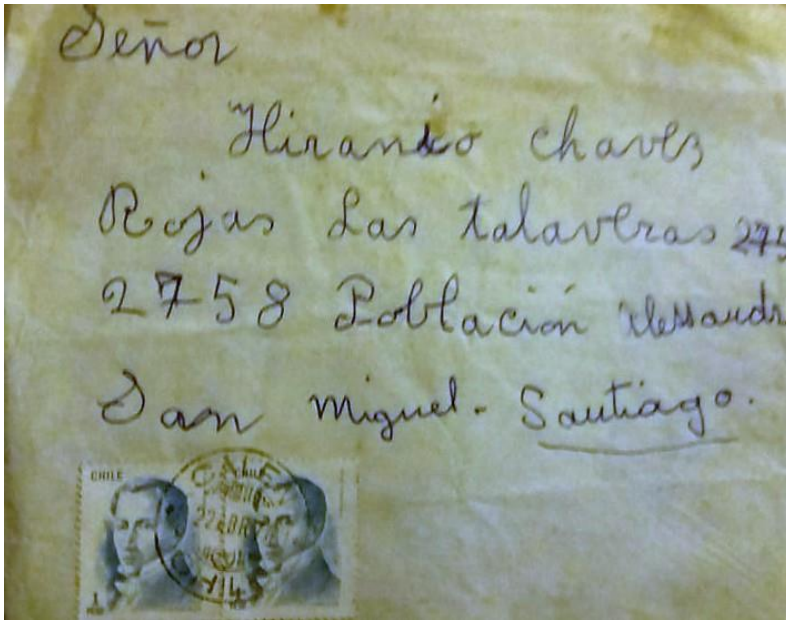 Señor
Hirando chaves
Rojas Las talaveras 275
2758 Población Alessandr
San Miguel. Santiago.
CHILE